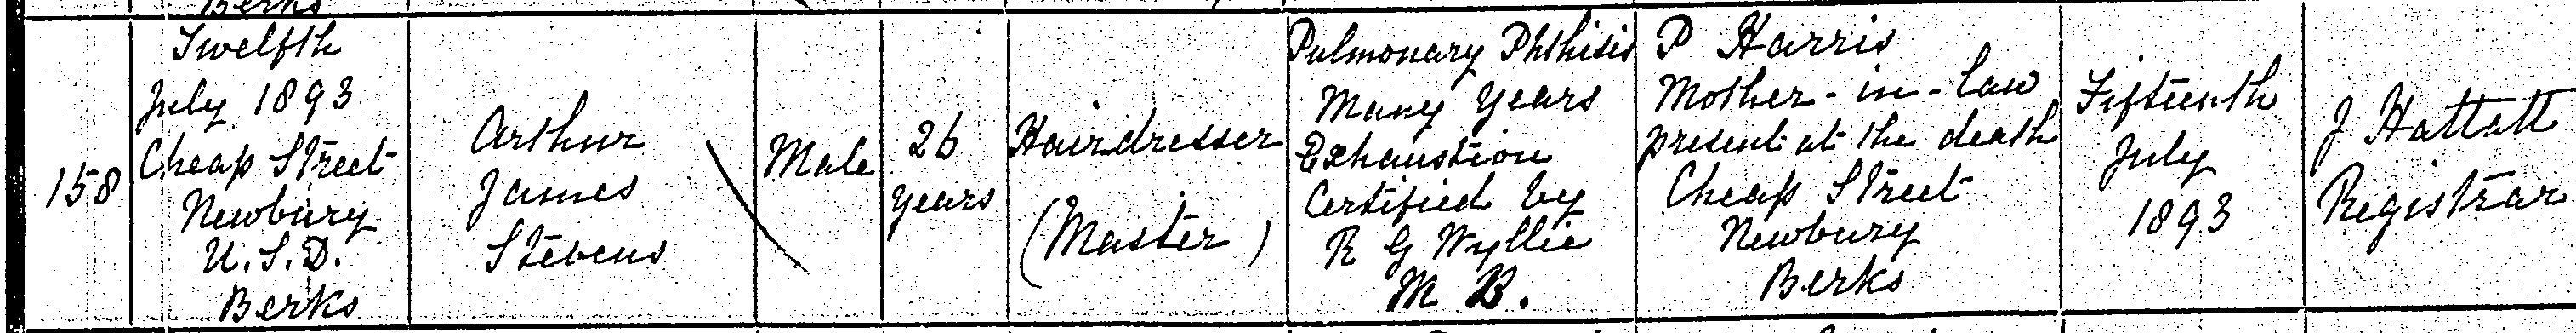 Berks
158
Twelfth
July 1893
Cheap Street
Newbury
U.S.D.
Berks
Arthur
James
Stevens
Male
26
years
Hairdresser
(Master)
Pulmonary Phthisis
Many years
Exhaustion
Certified by
R G Wyllie
M B.
P Harris
Mother-in-law
present at the death
Cheap Street
Newbury
Berks
Fifteenth
July
1893
J Hattatt
Registrar